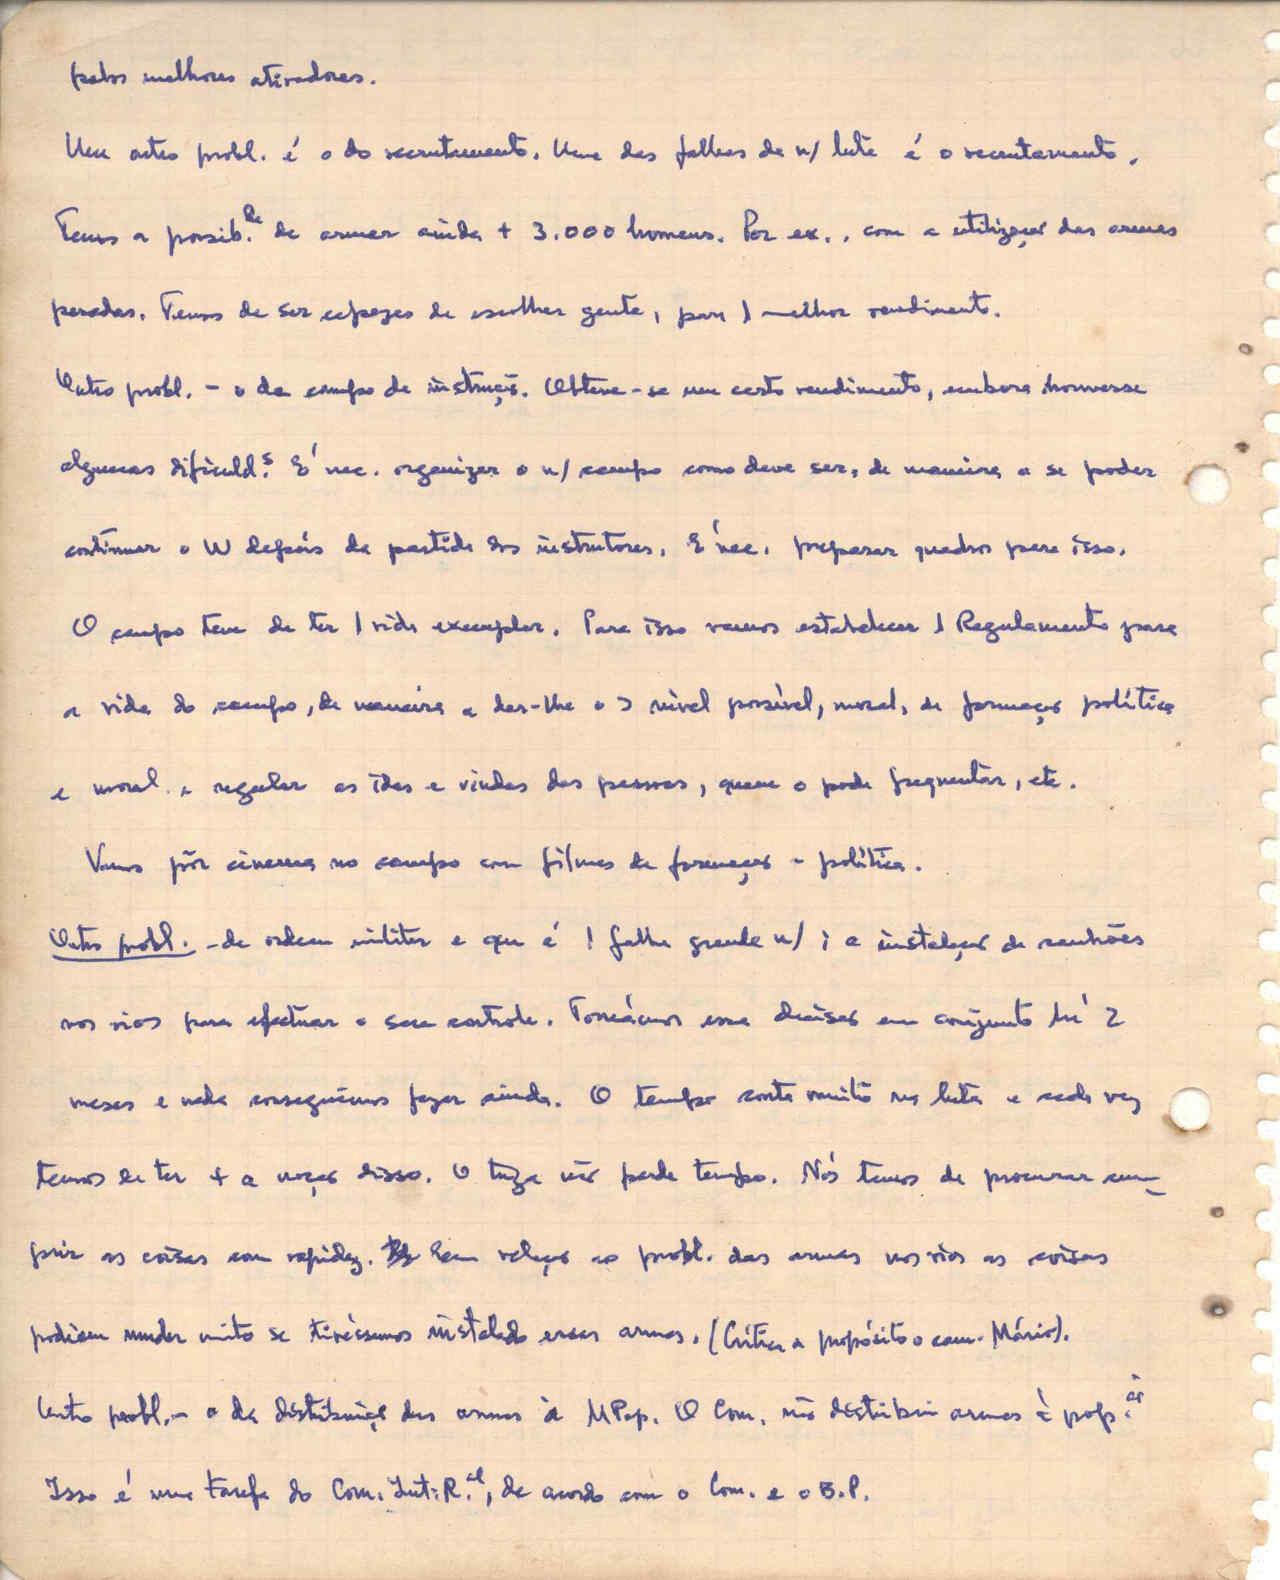 pelos melhores atiradores.
Um outro probl. é o do recrutamento. Uma das falhas da n/ luta é o recrutamento.
Temos a possib.de de armar ainda + 3.000 homens. Por ex., com a utilização das armas
pesadas. Temos de ser capazes de escolher gente, para 1 melhor rendimento.
Outro probl. - o do campo de instrução. Obteve-se um certo rendimento, embora houvesse
algumas dificuld.s É nec. organizar o n/ campo como deve ser, de maneira a se poder
continuar o W depois da partida dos instrutores. É nec. preparar quadros para isso.
O campo tem de ter 1 vida exemplar. Para isso vamos estabelecer 1 Regulamento para
a vida do campo, de maneira a dar-lhe o > nível possível, moral, de formação política
e moral e regular as idas e vindas das pessoas, quem o pode frequentar, etc.
Vamos pôr cinema no campo com filmes de formação - política.
Outro probl. - de ordem militar e que é 1 falha grande n/ é a instalação de canhões
nos rios para efectuar o seu controle. Tomámos essa decisão em conjunto há 2
meses e nada conseguimos fazer ainda. O tempo conta muito na luta e cada vez
temos de ter + a noção disso. O tuga não perde tempo. Nós temos de procurar cum-
prir as coisas com rapidez. Em relação ao probl. das armas nos rios as coisas
podiam mudar muito se tivéssemos instalado essas armas. (Critica a propósito o cam. Mário).
Outro probl. - o da distribuição das armas à M Pop. O Com. não distribui armas à pop.ão
Isso é uma tarefa do Com. Int. R.al, de acordo com o Com. e o B.P.